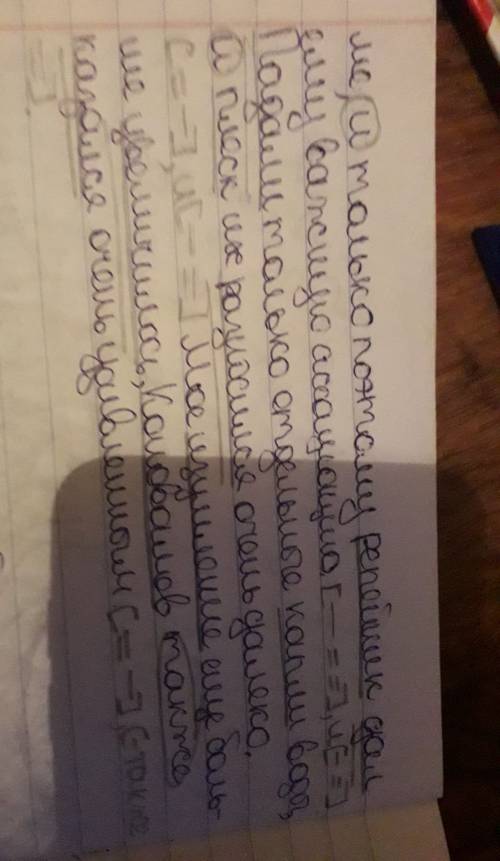 ме, и только поэтому репейник дал
ему важную ассоциацию [- ==], и [- =]
Падали только отдельные капли воды,
и плеск их разносился очень далеко.
[= -], и [- =] Мое изумление еще боль-
ше увеличилось, Коновалов также
казался очень удивленным [= -], [- также
=]